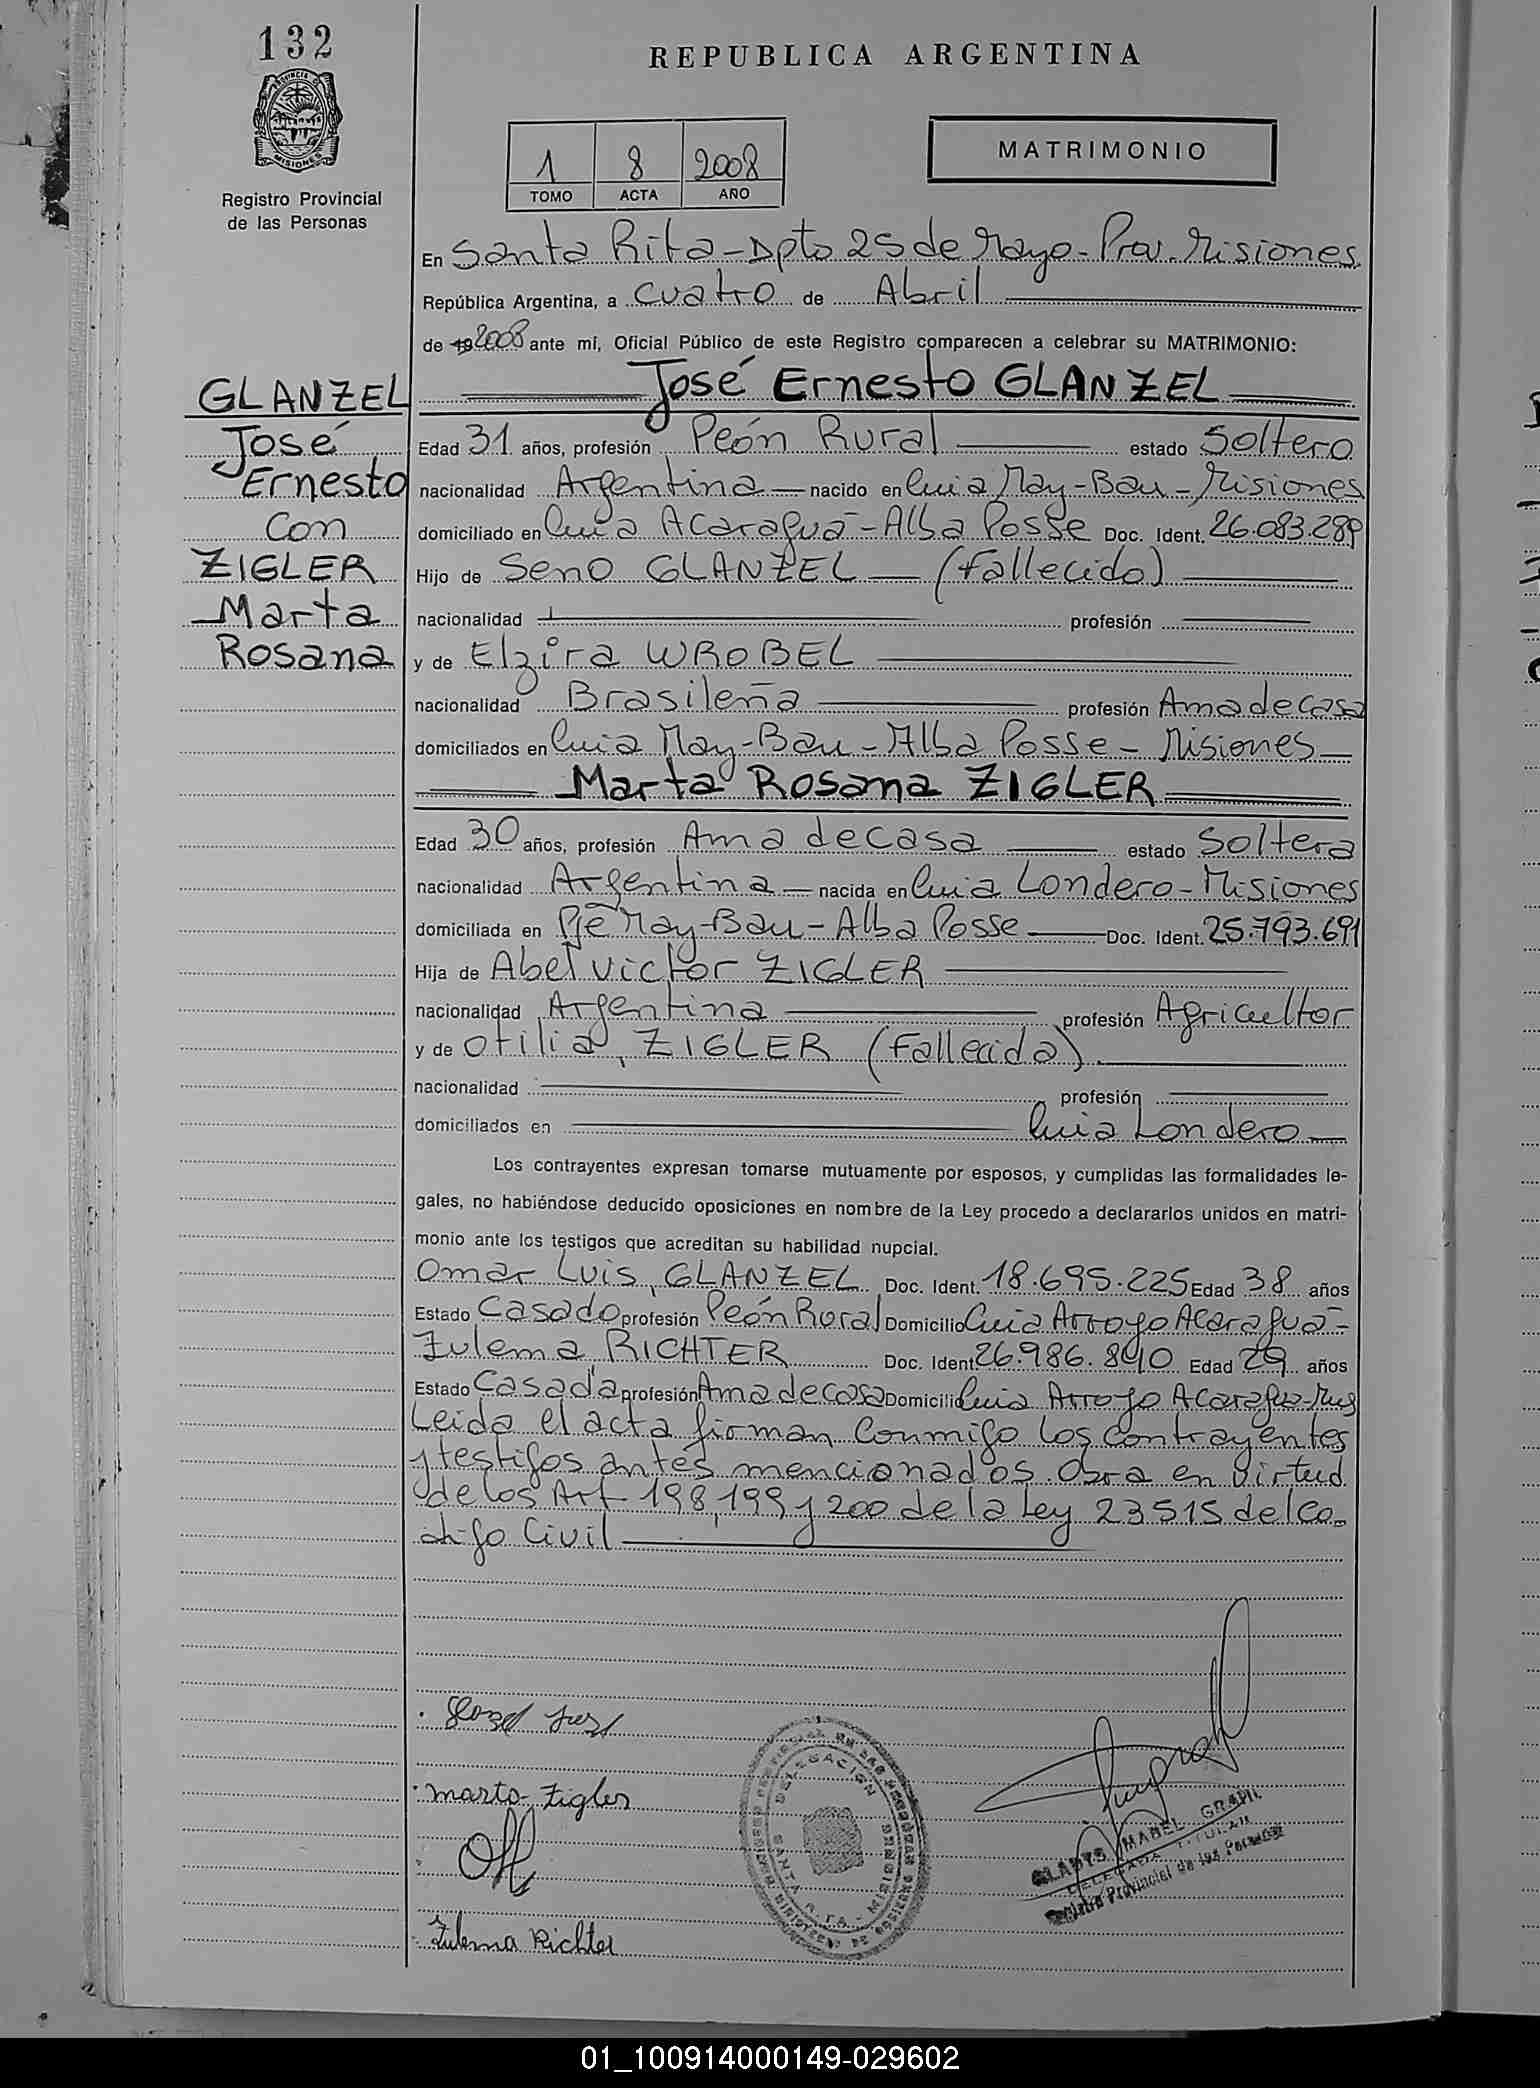 132
PROVINCIA DE
MISIONES
Registro Provincial
de las Personas
REPUBLICA ARGENTINA
1 8 2008
TOMO ACTA AÑO
MATRIMONIO
En Santa Rita - Dpto 25 de Mayo - Prov. Misiones
República Argentina, a cuatro de Abril
de 19 2008 ante mí, Oficial Público de este Registro comparecen a celebrar su MATRIMONIO:
GLANZEL
José
Ernesto
Con
ZIGLER
Marta
Rosana
José Ernesto GLANZEL
Edad 31 años, profesión Peón Rural estado Soltero
nacionalidad Argentina nacido en Cnia May-Bau - Misiones
domiciliado en Cnia Acaraguá - Alba Posse Doc. Ident. 26.083.289
Hijo de Seno GLANZEL (Fallecido)
nacionalidad profesión
y de Elzira WROBEL
nacionalidad Brasileña profesión Ama de Casa
domiciliados en Cnia May-Bau - Alba Posse - Misiones
Marta Rosana ZIGLER
Edad 30 años, profesión Ama de casa estado Soltera
nacionalidad Argentina nacida en Cnia Londero - Misiones
domiciliada en Pje May-Bau - Alba Posse Doc. Ident. 25.793.691
Hija de Abel Victor ZIGLER
nacionalidad Argentina profesión Agricultor
y de Otilia, ZIGLER (Fallecida)
nacionalidad profesión
domiciliados en Cnia Londero
Los contrayentes expresan tomarse mutuamente por esposos, y cumplidas las formalidades le-
gales, no habiéndose deducido oposiciones en nombre de la Ley procedo a declararlos unidos en matri-
monio ante los testigos que acreditan su habilidad nupcial.
Omar Luis, GLANZEL Doc. Ident. 18.695.225 Edad 38 años
Estado Casado profesión Peón Rural Domicilio Cnia Arroyo Acaraguá -
Zulema RICHTER Doc. Ident 26.986.840 Edad 29 años
Estado Casada profesión Ama de casa Domicilio Cnia Arroyo Acaragua-
Leida el acta firman Conmigo los Contrayentes
y testigos antes mencionados. Obra en Virtud
de los Art 198, 199 y 200 de la Ley 23515 del Co-
digo Civil
Marta Zigler
Zulema Richter
DELEGACION
SANTA RITA - MISIONES
GLADYS MABEL GRAPIL
DELEGADA TITULAR
Registro Provincial de las Personas
01_100914000149-029602